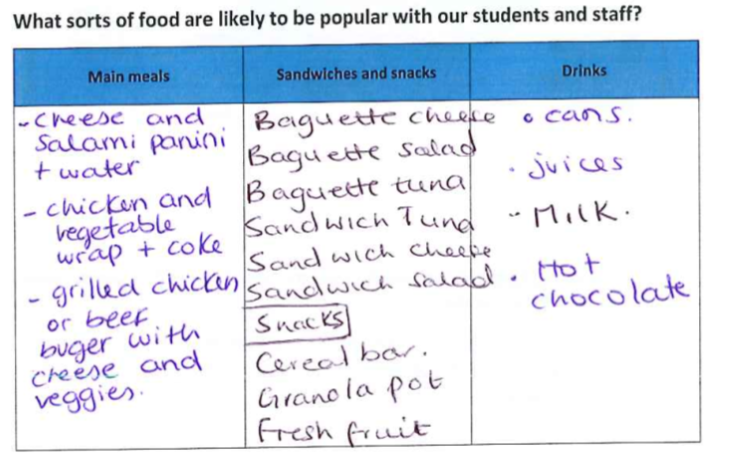 What sorts of food are likely to be popular with our students and staff?
Main meals
Sandwiches and snacks
Drinks
- Cheese and
Salami panini
+ water
- chicken and
vegetable
wrap + coke
- grilled chicken
or beef
buger with
cheese and
veggies.
Baguette cheese
Baguette salad
Baguette tuna
Sandwich Tuna
Sandwich cheese
Sandwich salad
Snacks
Cereal bar.
Granola pot
Fresh fruit
• cans.
• juices
- Milk.
• Hot
chocolate